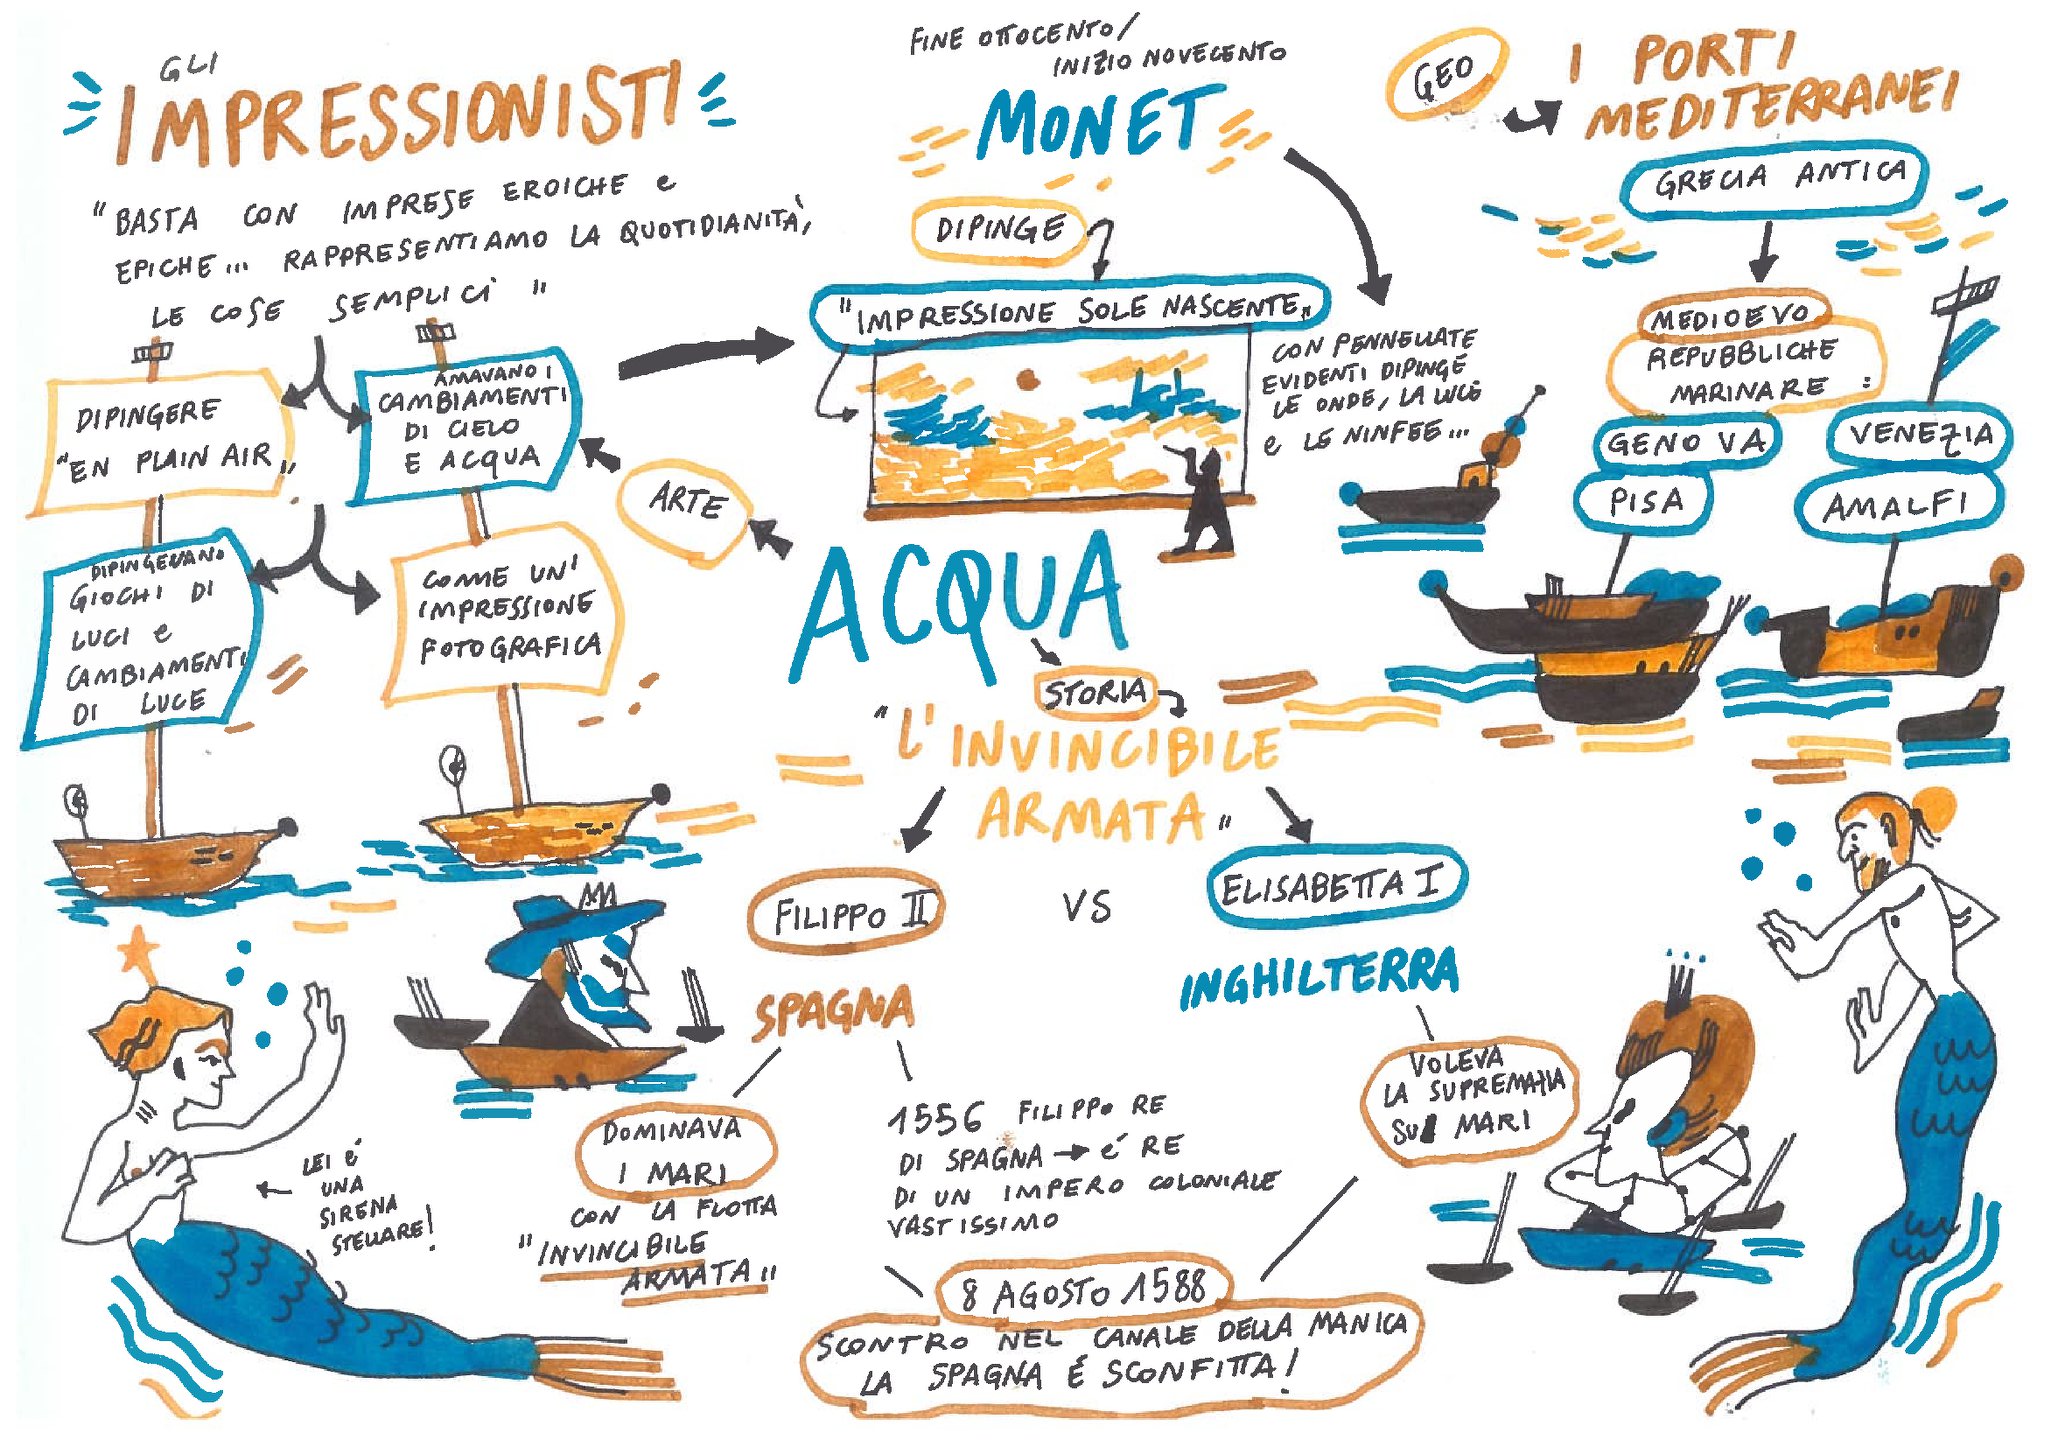 GLI
IMPRESSIONISTI
"BASTA CON IMPRESE EROICHE e
EPICHE... RAPPRESENTIAMO LA QUOTIDIANITÀ,
LE COSE SEMPLICI"
DIPINGERE
"EN PLAIN AIR"
AMAVANO I
CAMBIAMENTI
DI CIELO
E ACQUA
DIPINGEVANO
GIOCHI DI
LUCI e
CAMBIAMENTI
DI LUCE
COME UN'
IMPRESSIONE
FOTOGRAFICA
ARTE
FINE OTTOCENTO/
INIZIO NOVECENTO
MONET
DIPINGE
"IMPRESSIONE SOLE NASCENTE"
CON PENNELLATE
EVIDENTI DIPINGE
LE ONDE, LA LUCE
e LE NINFEE...
GEO
I PORTI
MEDITERRANEI
GRECIA ANTICA
MEDIOEVO
REPUBBLICHE
MARINARE :
GENOVA
VENEZIA
PISA
AMALFI
ACQUA
STORIA
"L'INVINCIBILE
ARMATA"
FILIPPO II
VS
ELISABETTA I
SPAGNA
INGHILTERRA
DOMINAVA
I MARI
CON LA FLOTTA
"INVINCIBILE
ARMATA"
1556 FILIPPO RE
DI SPAGNA → é RE
DI UN IMPERO COLONIALE
VASTISSIMO
VOLEVA
LA SUPREMAZIA
SUI MARI
8 AGOSTO 1588
SCONTRO NEL CANALE DELLA MANICA
LA SPAGNA É SCONFITTA!
LEI é
UNA
SIRENA
STELLARE!